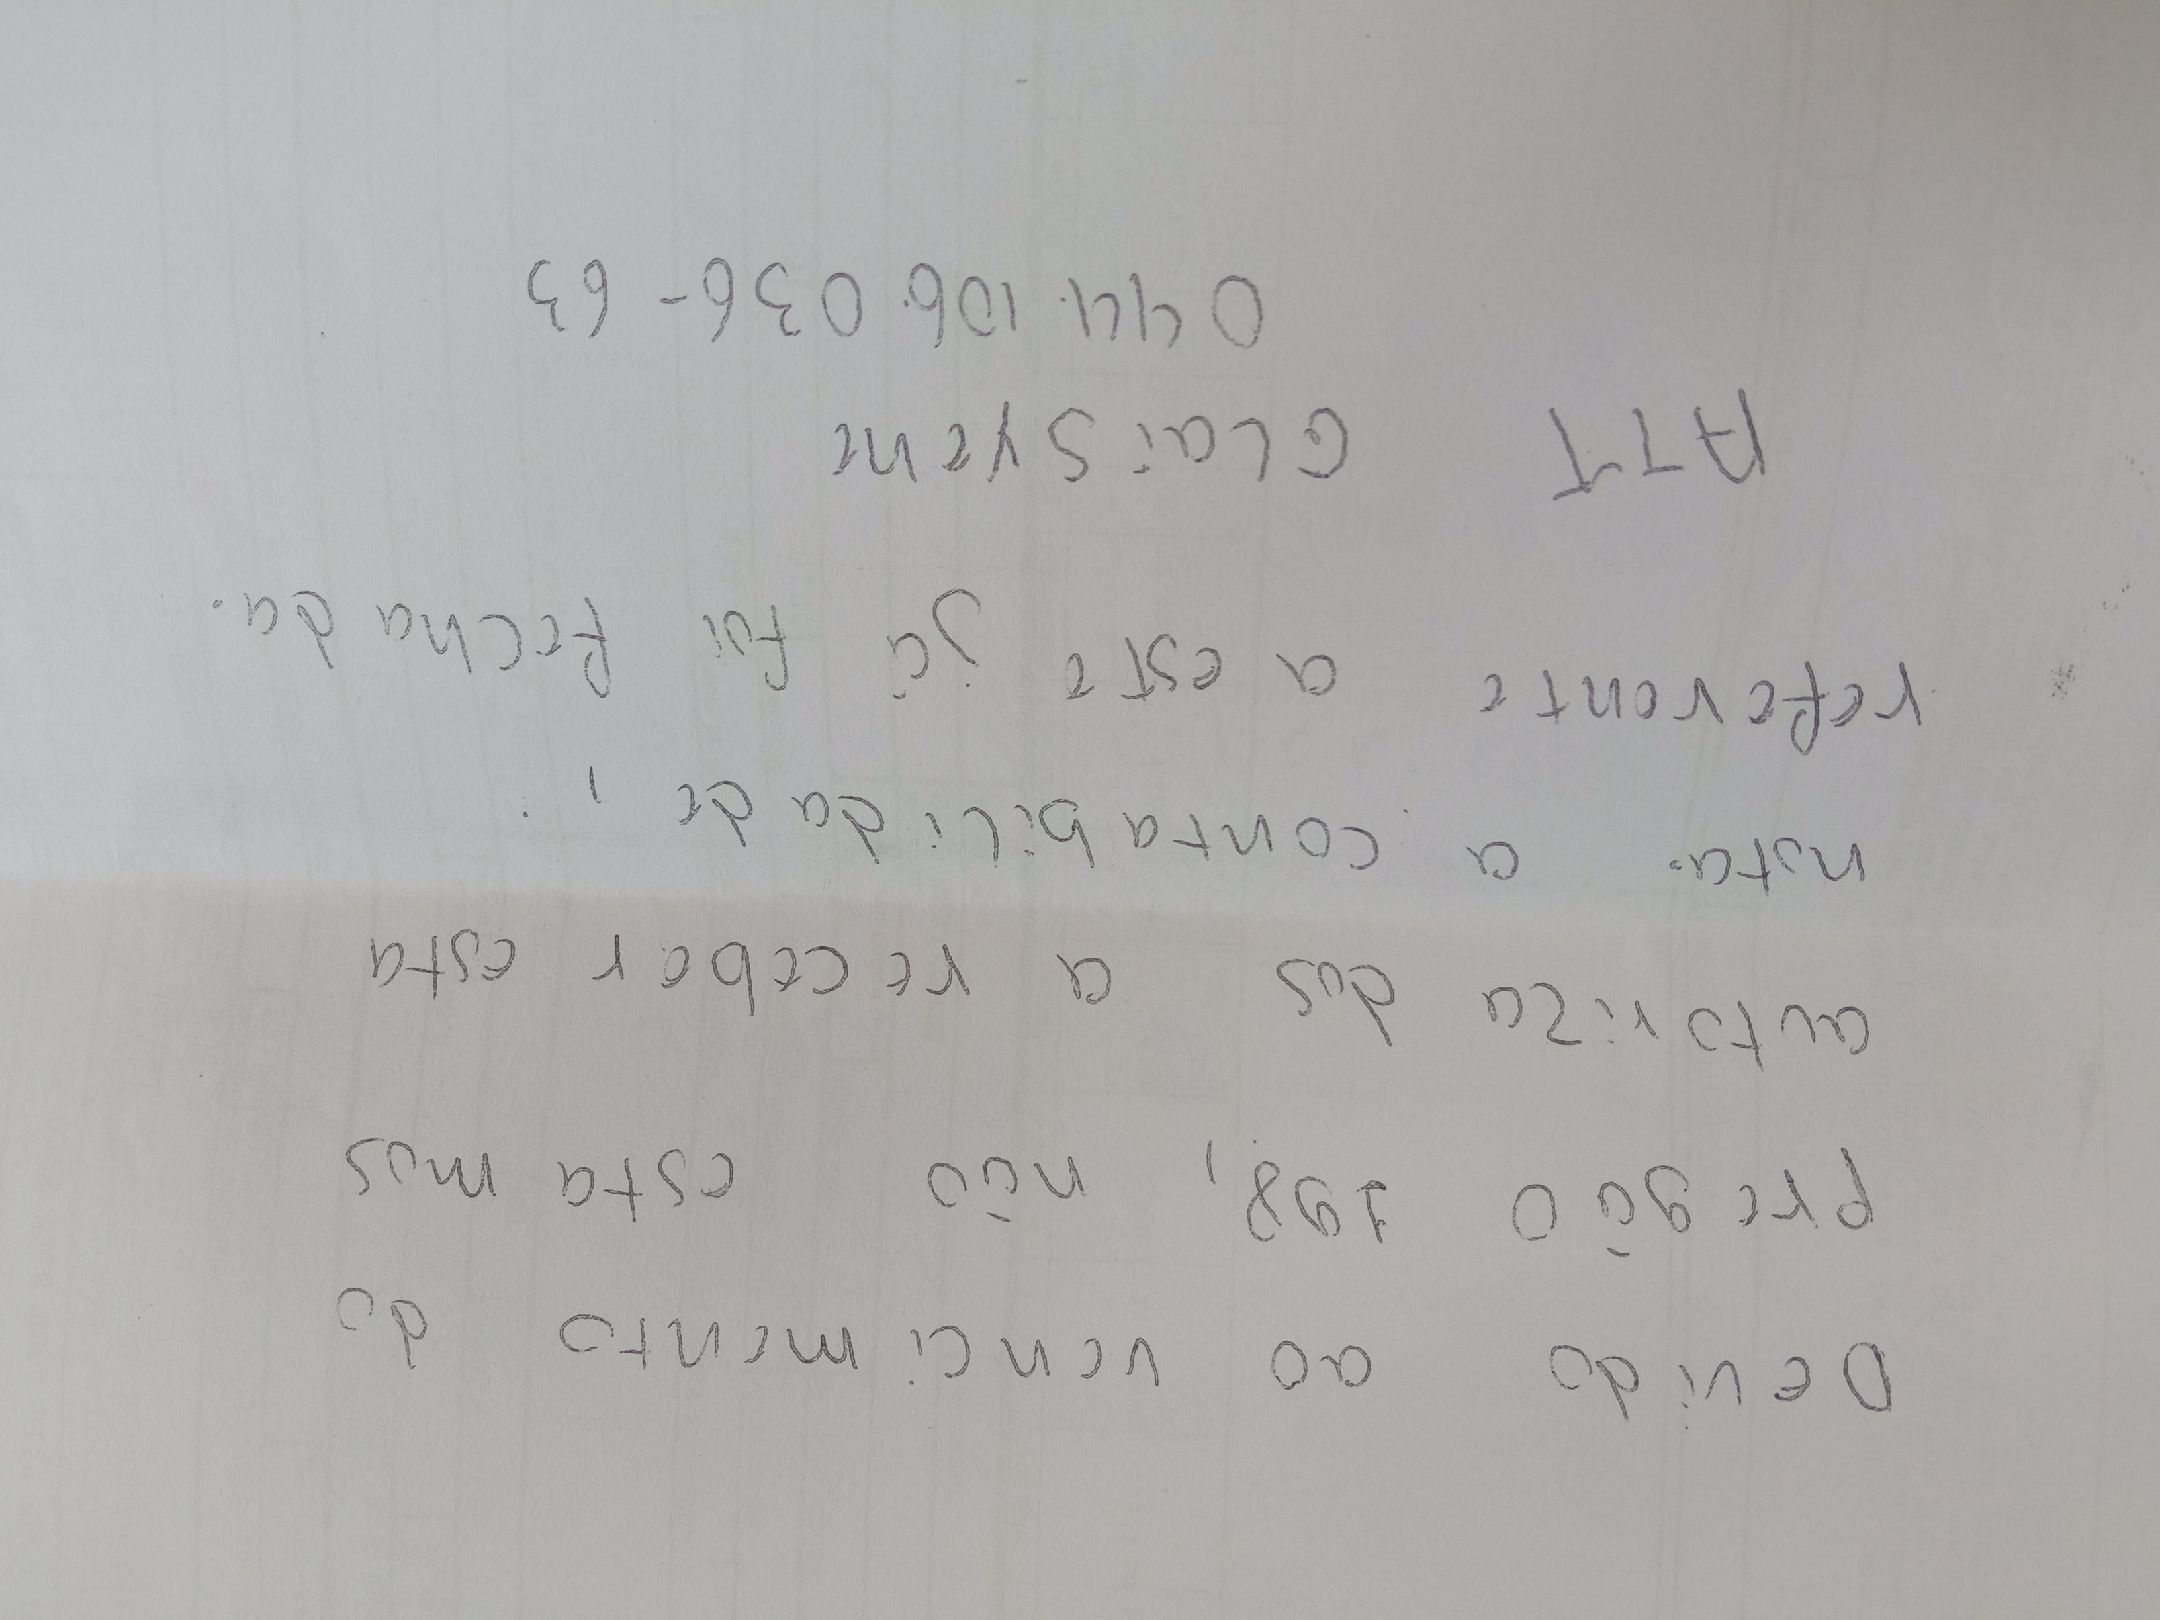 Devido ao vencimento do
pregão 198, não estamos
autorizados a receber esta
nota. a contabilidade,
referente a este já foi fechada.
ATT Glaisyene
044.106.036-63